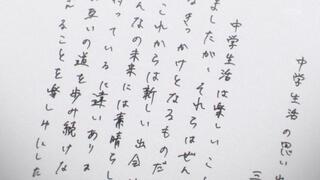 中学生活の思い出
三
中学生活は楽しいこ
ましたが、それらはぜん
きっかけとなるものだ
これからは新しい出会
んなの未来には素晴らし
待っているに違いありま
互いの道を歩み続けな
ることを楽しみにした